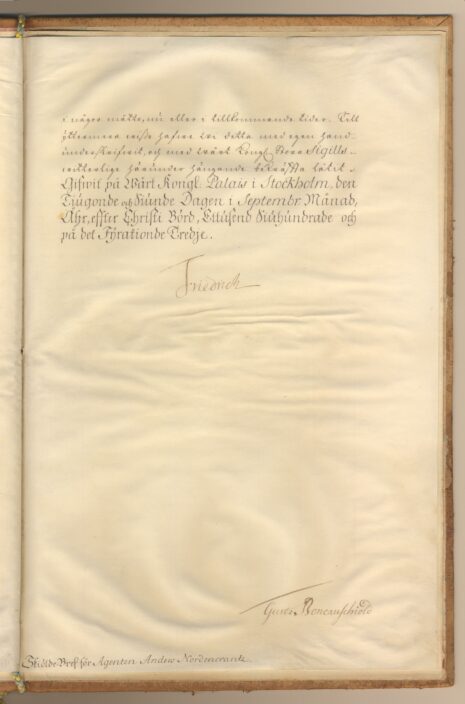 i någor måtto, nu eller i tillkommande tider. Till
yttermera visso hafve wi detta med egen hand
underskrifvit, och med wårt Kongl. Stora Sigills
witterlige härunder hängande bekräffta låtit.
Gifwit på Wårt Kongl. Palais i Stockholm, den
Tjugonde och Siunde Dagen i Septembr Månad,
Åhr, effter Christi Börd, Ettusend Siuhundrade och
på det Fyrationde Tredje.
Friedrich
Gust: Boneauschiöld
Skiölde-Bref för Agenten Anders Nordencrantz.